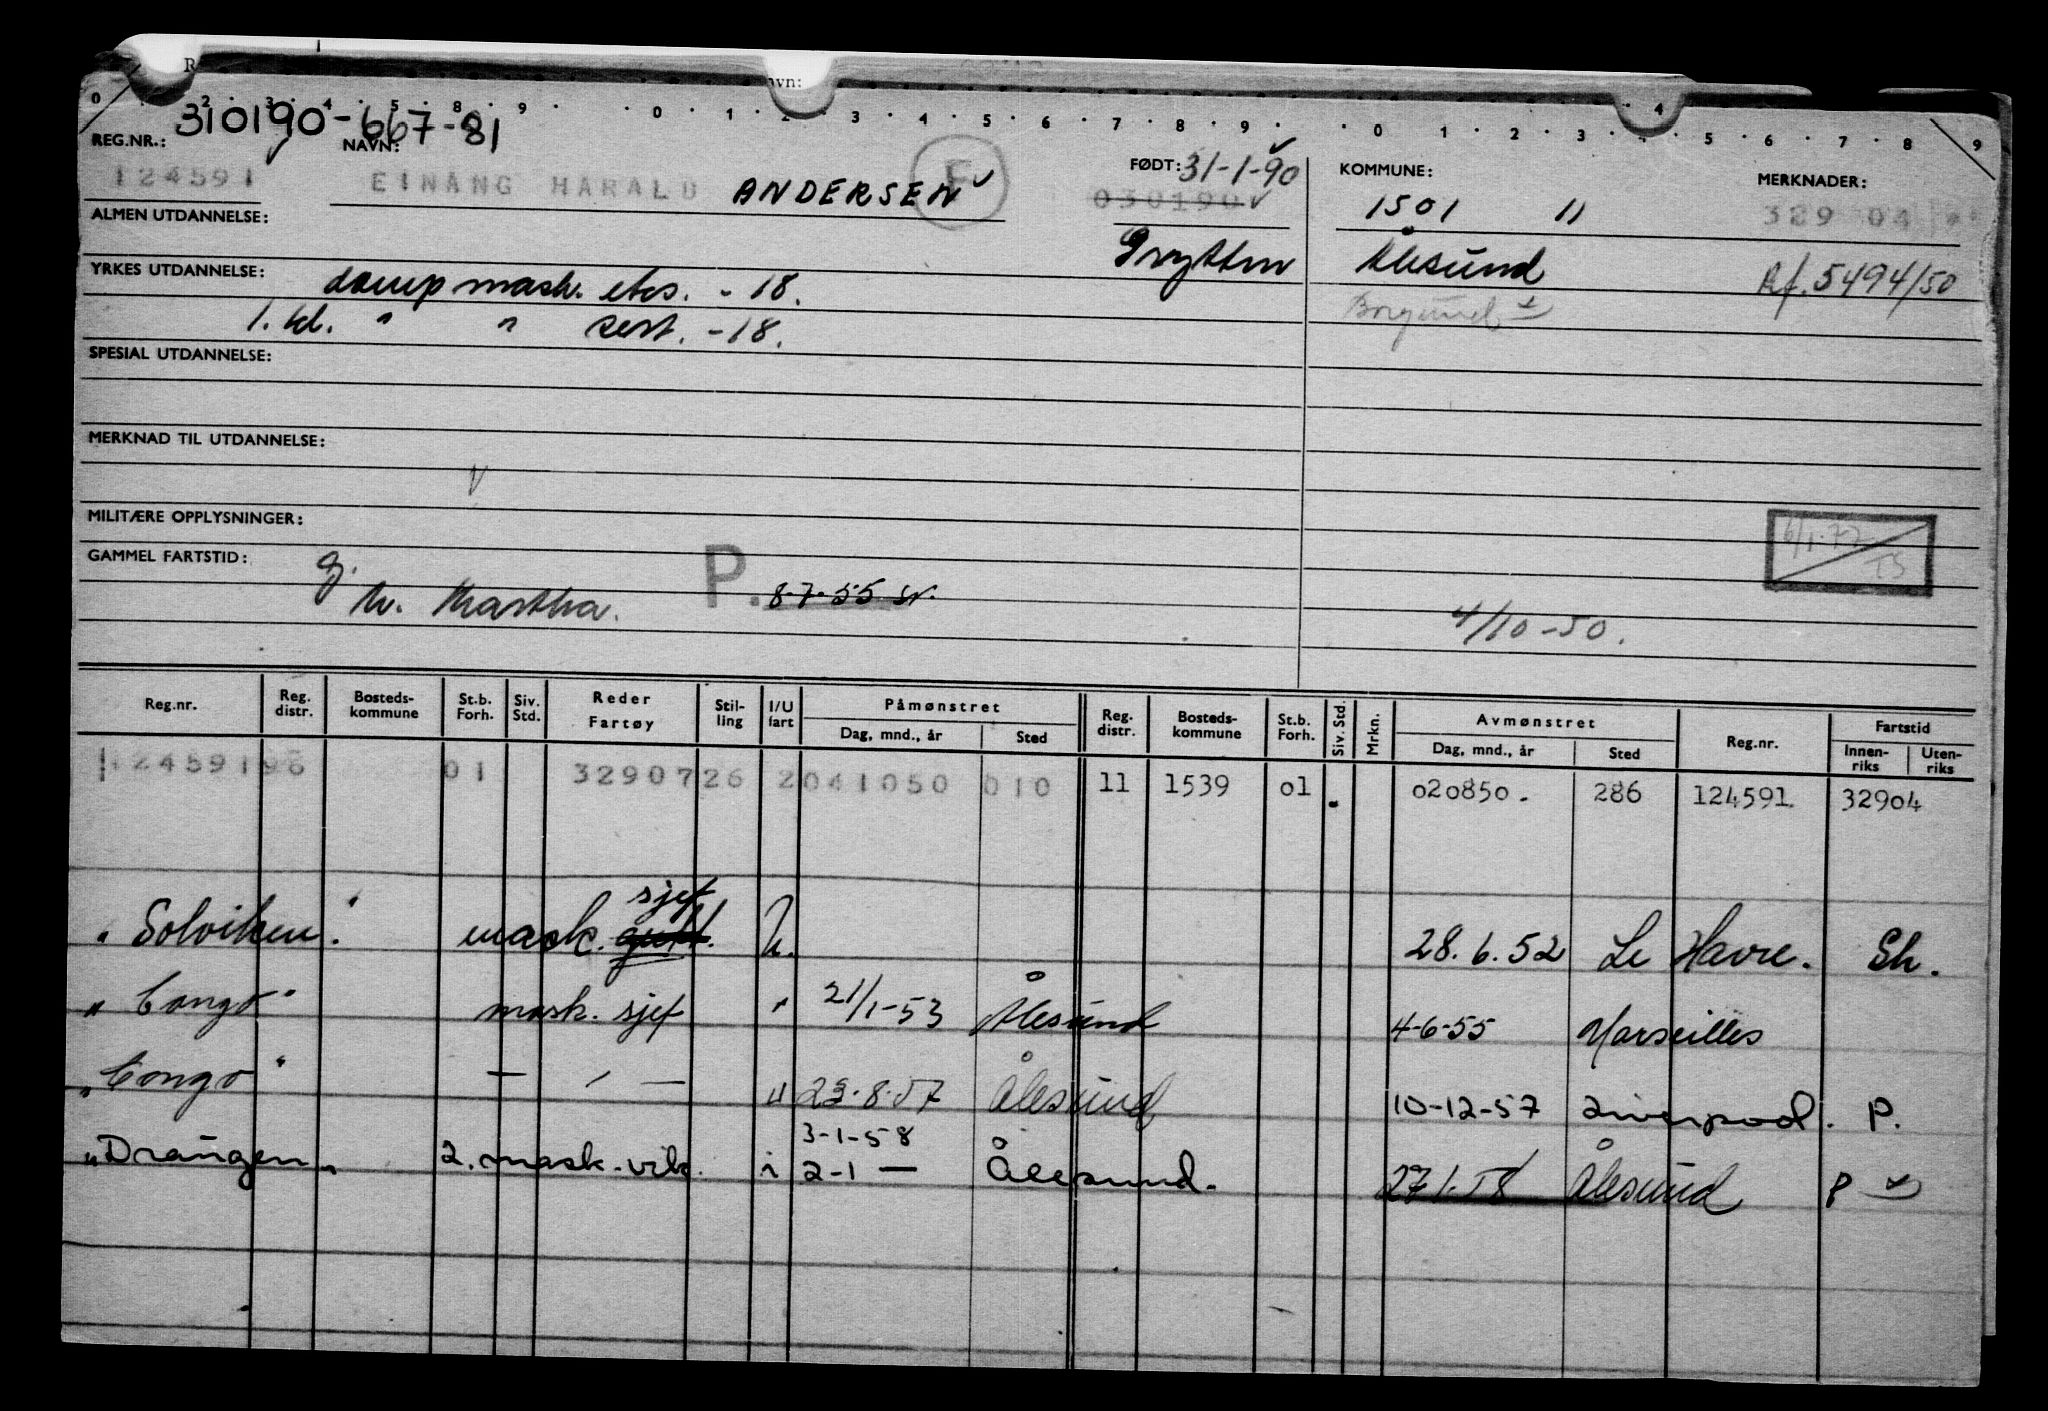 avn:
0 2 3 4 5 8 9 0 1 2 3 4 5 6 7 8 9 0 1 2 3 4 5 6 7 8 9
REG.NR.: 310190-667-81 NAVN: FØDT: 31-1-90 KOMMUNE: MERKNADER:
124591 EINANG HARALD ANDERSEN 030190 1501 11 329 04
ALMEN UTDANNELSE: Grytten Ålesund Rf. 5494/50
YRKES UTDANNELSE: damp mask. eks. - 18. Borgund
1. kl. " " sert. - 18.
SPESIAL UTDANNELSE:
MERKNAD TIL UTDANNELSE:
MILITÆRE OPPLYSNINGER: 6/1-77
GAMMEL FARTSTID: g. P. TS
h. Martha. 8-7-55 sr. 4/10-50.
Reg.nr. Reg. distr. Bosteds-kommune St.b. Forh. Siv. Std. Reder Fartøy Stil-ling I/U fart Påmønstret Dag, mnd., år Sted Reg. distr. Bosteds-kommune St.b. Forh. Siv. Std. Mrkn. Avmønstret Dag, mnd., år Sted Reg.nr. Fartstid Innen-riks Uten-riks
12459196 01 3290726 2041050 010 11 1539 01 . 020850. 286 124591 32904
sjef
"Solviken." mask. U. 28.6.52 Le Havre. Sh.
"Congo" mask. sjef " 21/1-53 Ålesund 4-6-55 Marseilles
"Congo" — / — " 23.8.57 Ålesund 10-12-57 Liverpool. P.
3-1-58
"Drangen" 2. mask. vik. i 2-1 — Ålesund. 27/1.58 Ålesund P